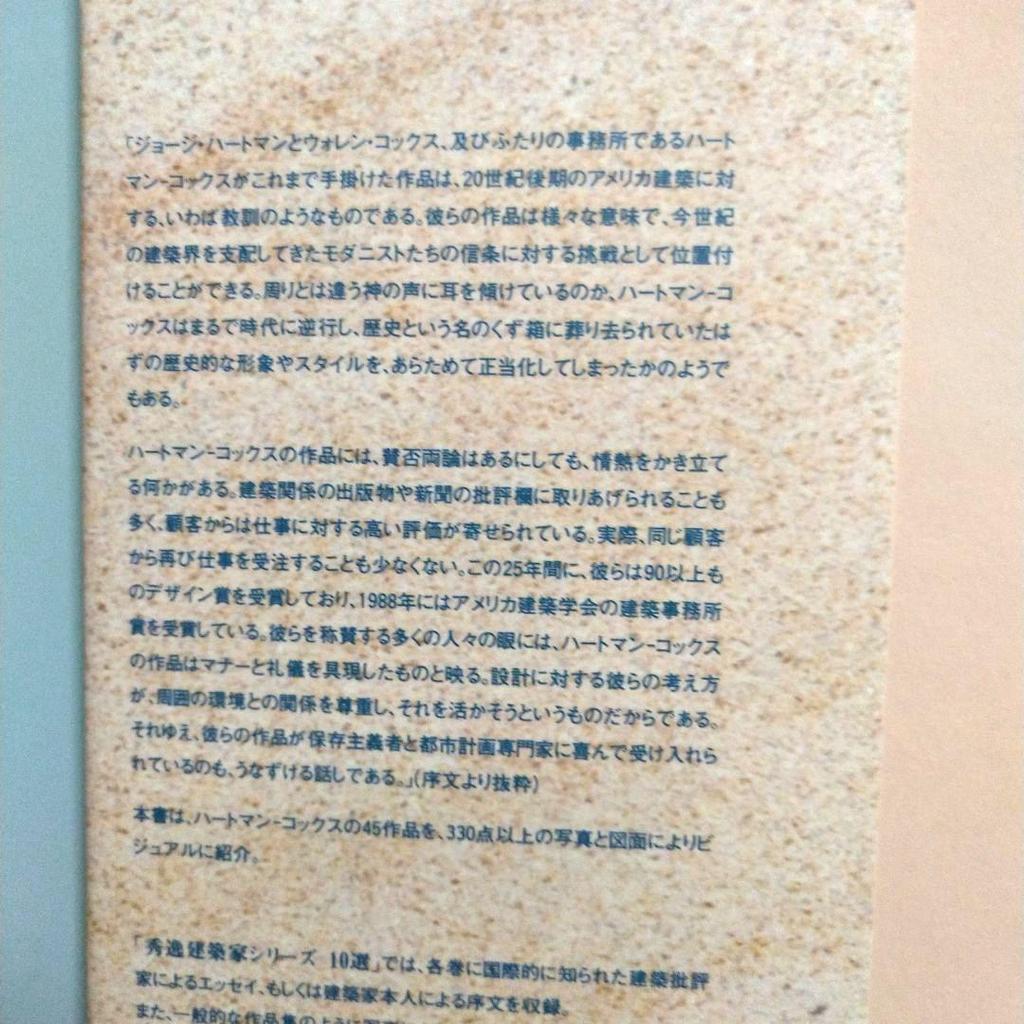 「ジョージ・ハートマンとウォレン・コックス、及びふたりの事務所であるハート
マン-コックスがこれまで手掛けた作品は、20世紀後期のアメリカ建築に対
する、いわば教訓のようなものである。彼らの作品は様々な意味で、今世紀
の建築界を支配してきたモダニストたちの信条に対する挑戦として位置付
けることができる。周りとは違う神の声に耳を傾けているのか、ハートマン-コ
ックスはまるで時代に逆行し、歴史という名のくず箱に葬り去られていたは
ずの歴史的な形象やスタイルを、あらためて正当化してしまったかのようで
もある。
ハートマン-コックスの作品には、賛否両論はあるにしても、情熱をかき立て
る何かがある。建築関係の出版物や新聞の批評欄に取りあげられることも
多く、顧客からは仕事に対する高い評価が寄せられている。実際、同じ顧客
から再び仕事を受注することも少なくない。この25年間に、彼らは90以上も
のデザイン賞を受賞しており、1988年にはアメリカ建築学会の建築事務所
賞を受賞している。彼らを称賛する多くの人々の眼には、ハートマン-コックス
の作品はマナーと礼儀を具現したものと映る。設計に対する彼らの考え方
が、周囲の環境との関係を尊重し、それを活かそうというものだからである。
それゆえ、彼らの作品が保存主義者と都市計画専門家に喜んで受け入れら
れているのも、うなずける話しである。」(序文より抜粋)
本書は、ハートマン-コックスの45作品を、330点以上の写真と図面によりビ
ジュアルに紹介。
「秀逸建築家シリーズ 10選」では、各巻に国際的に知られた建築批評
家によるエッセイ、もしくは建築家本人による序文を収録。
また、一般的な作品集のように